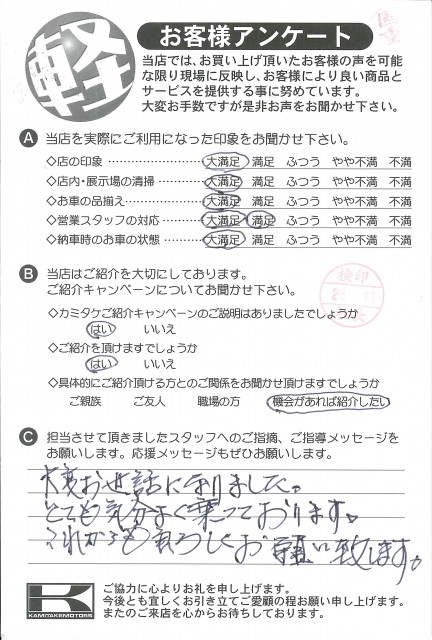 軽
お客様アンケート
当店では、お買い上げ頂いたお客様の声を可能
な限り現場に反映し、お客様により良い商品と
サービスを提供する事に努めています。
大変お手数ですが是非お声をお聞かせ下さい。
A 当店を実際にご利用になった印象をお聞かせ下さい。
◇店の印象 大満足 満足 ふつう やや不満 不満
◇店内・展示場の清掃 大満足 満足 ふつう やや不満 不満
◇お車の品揃え 大満足 満足 ふつう やや不満 不満
◇営業スタッフの対応 大満足 満足 ふつう やや不満 不満
◇納車時のお車の状態 大満足 満足 ふつう やや不満 不満
B 当店はご紹介を大切にしております。
ご紹介キャンペーンについてお聞かせ下さい。
検印
◇カミタケご紹介キャンペーンのご説明はありましたでしょうか
はい いいえ
◇ご紹介を頂けますでしょうか
はい いいえ
◇具体的にご紹介頂ける方とのご関係をお聞かせ頂けますでしょうか
ご親族 ご友人 職場の方 機会があれば紹介したい
C 担当させて頂きましたスタッフへのご指摘、ご指導メッセージを
お願いします。応援メッセージもぜひお願いします。
大変お世話に成りました。
とても気分よく乗っております。
これからもよろしくお願い致します。
KAMITAKEMOTORS
ご協力に心よりお礼を申し上げます。
今後とも宜しくお引き立てご愛顧の程お願い申し上げます。
またのご来店を心からお待ちしております。